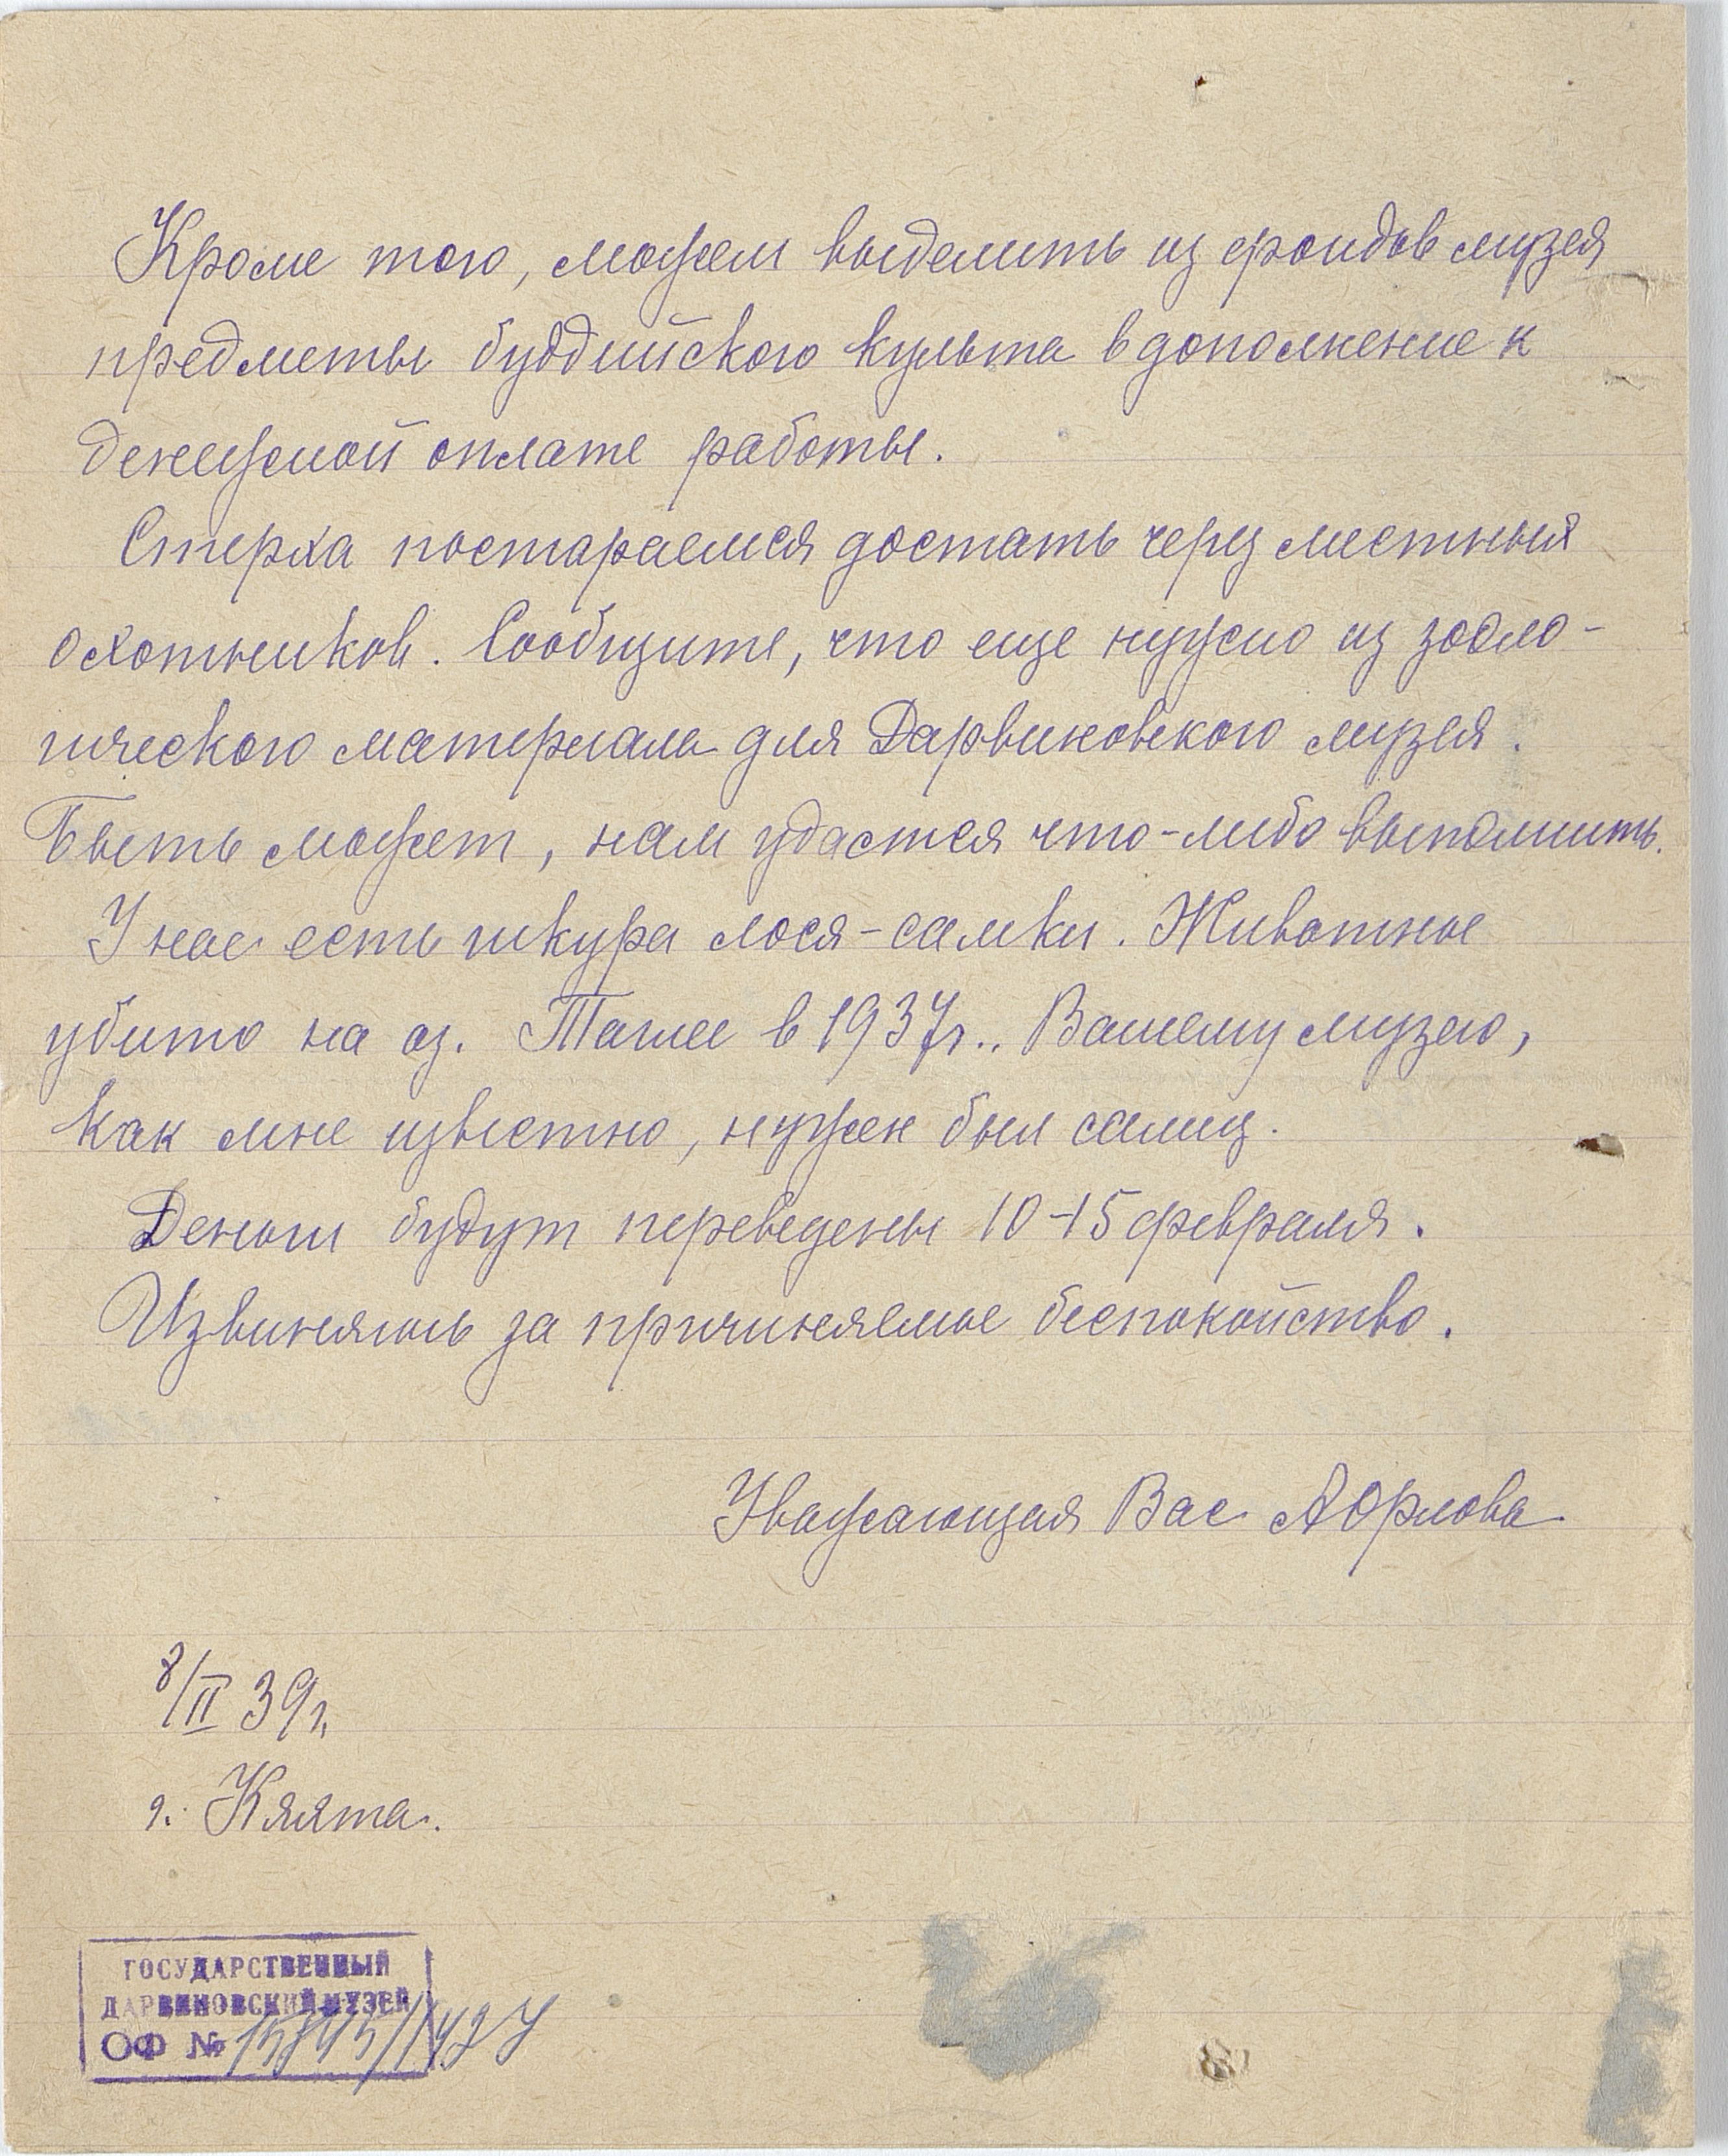 Кроме того, можем выделить из фондов музея
предметы буддийского культа в дополнение к
денежной оплате работы.
Стерха постараемся достать через местных
охотников. Сообщите, что еще нужно из зооло-
гического материала для Дарвиновского музея.
Быть может, нам удастся что-либо выполнить.
У нас есть шкура лося-самки. Животное
убито на оз. Таглее в 1937г.. Вашему музею,
как мне известно, нужен был самец.
Деньги будут переведены 10-15 февраля.
Извиняюсь за причиняемое беспокойство.
Уважающая Вас АОрлова
8/II 39г.
г. Кяхта.
ГОСУДАРСТВЕННЫЙ
ДАРВИНОВСКИЙ МУЗЕЙ
ОФ №